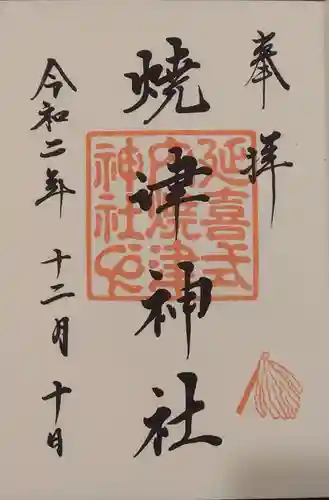 奉拝
焼津神社
延喜式
内焼津
神社印
令和二年 十二月 十日